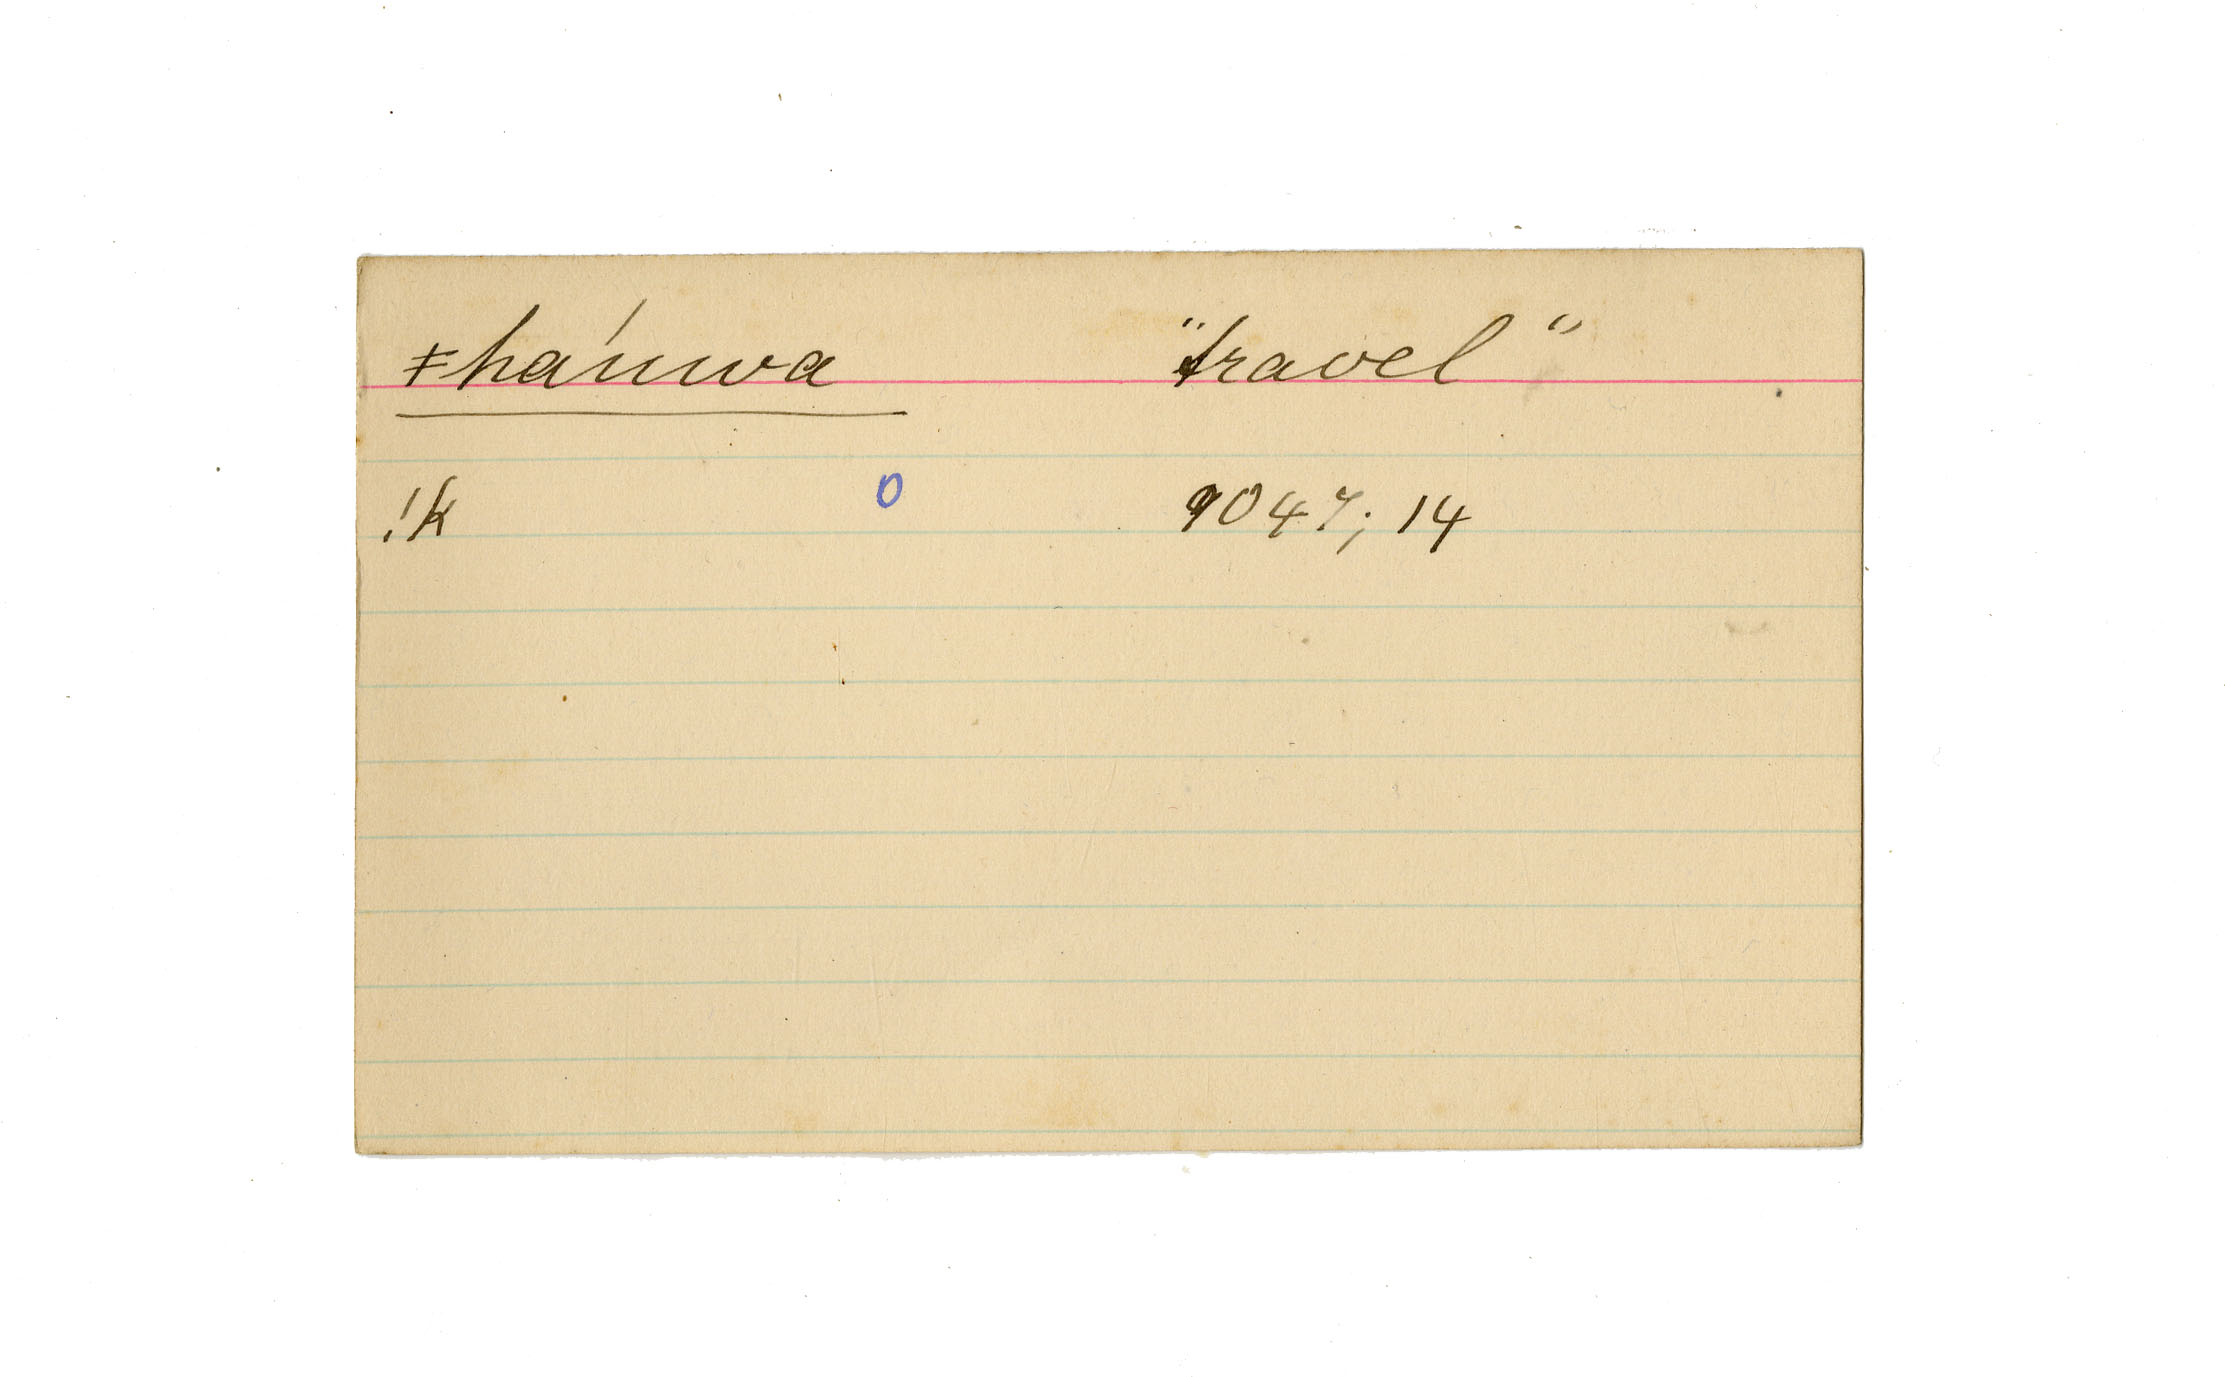 ǂhánwa "travel"
!k 0 9047; 14